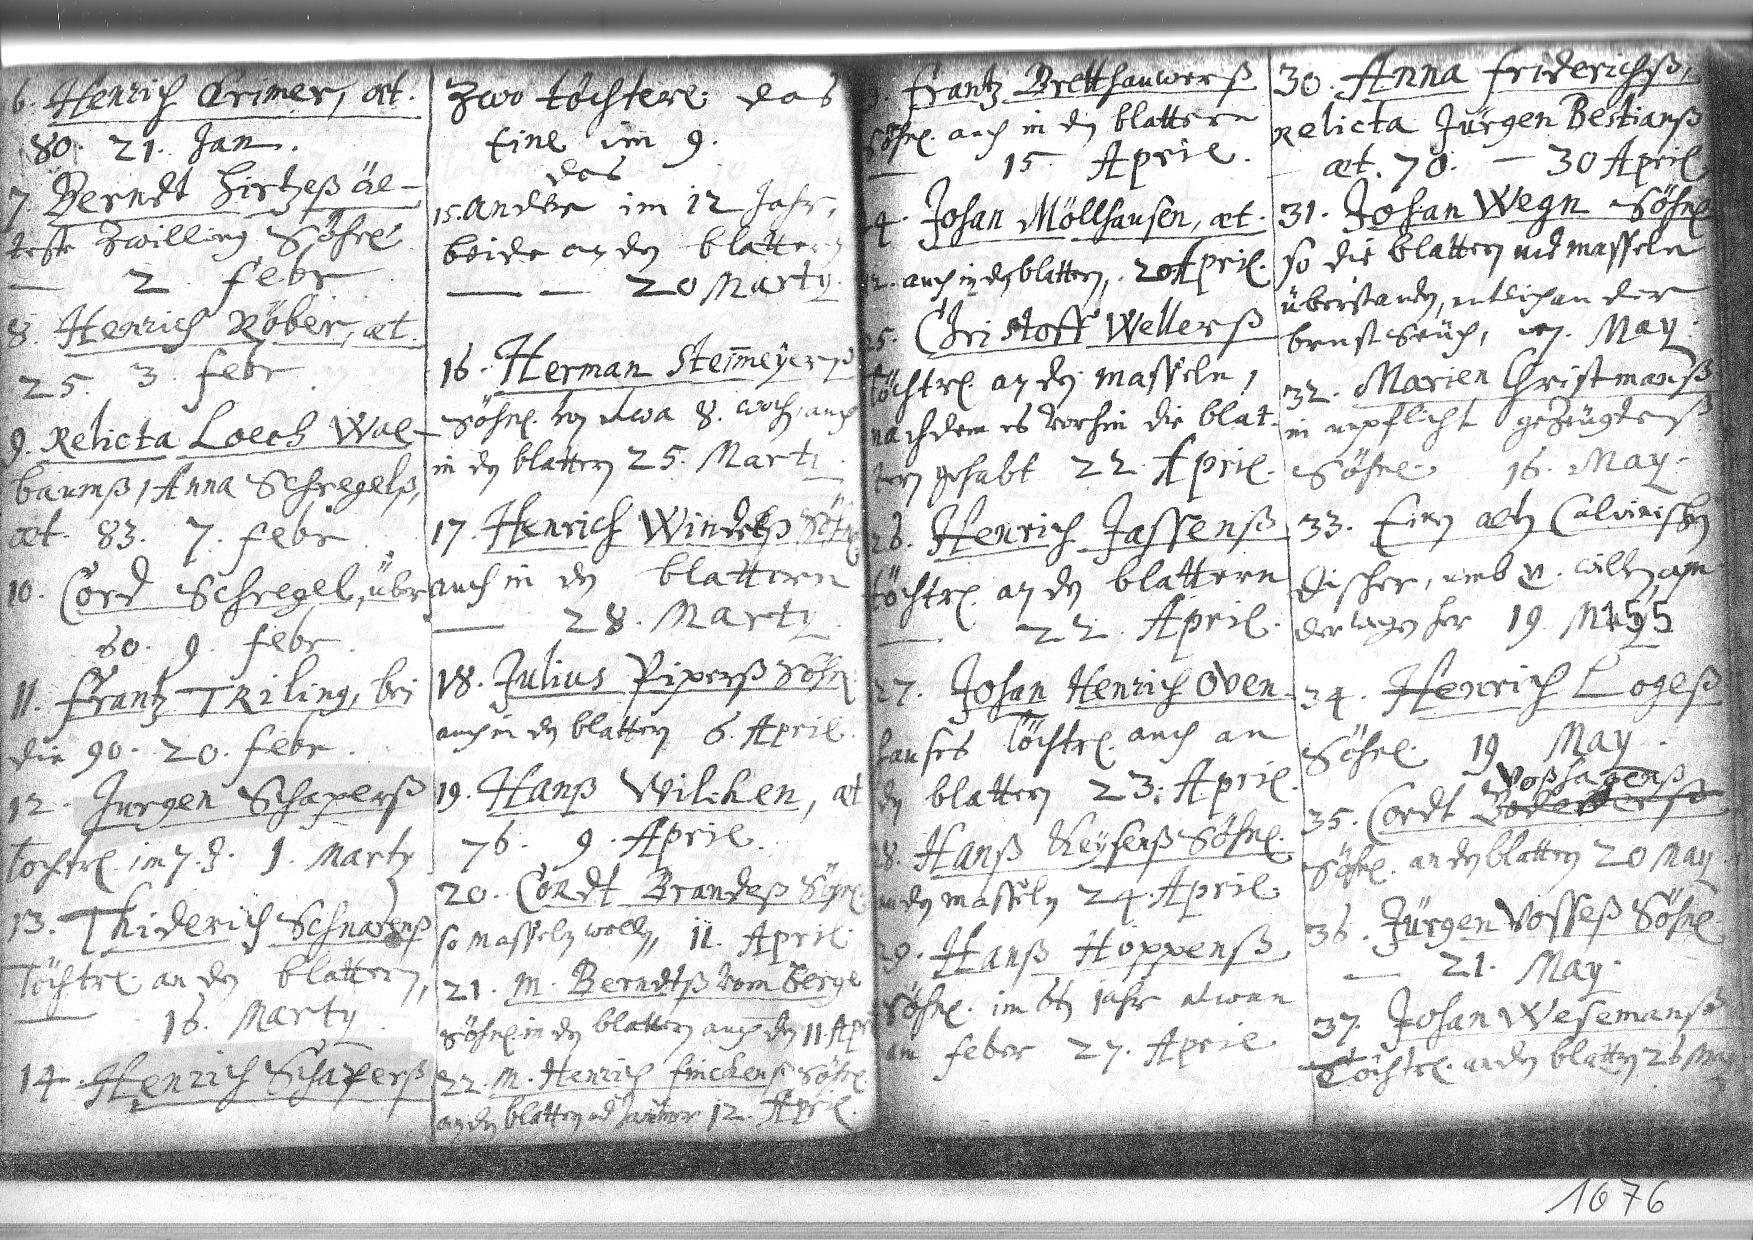 6. Henrich Crimer, æt.
80. 21. Jan.
7. Berndt Hirtzeß äl-
teste Zwilling Söhnl.
— 2 febr
8. Henrich Röber, æt.
25. 3 febr.
9. Relicta Loech Wal-
baumß, Anna Schregelß,
æt. 83. 7. febr
10. Cord Schregel, über
60. 9. febr.
11. Frantz Triling, bei
die 90. 20. febr.
12. Jurgen Schaperß
Töchtrl. im 7. J. 1. Marty
13. Thiderich Schnarenß
Töchtrl. an den blattern,
— 16. Marty.
14. Henrich Schaperß
Zwo töchterl. das
Eine im 9.
das
15. andere im 12 Jahr,
beide an den blattern
— — 20 Marty.
16. Herman Steinmeyerß
Söhnl. von etwa 8. woch, auch
in den blattern 25. Marty.
17. Henrich Windelß Söhnl
auch in den blattern
— 28. Marty.
18. Julius Piperß Söhnl
auch in den blattern 6. April.
19. Hanß Wilcken, æt
76. 9. April.
20. Cordt Brandeß Söhnl.
so masseln 11. April.
21. M. Berndtß vom Berge
Söhnl. in den blattern auch den 11 Apr
22. M. Henrich Finckenß Söhnl.
an den blattern 12. April.
Frantz Bretthauwerß
Söhnl. auch in den blattern
— 15. April.
24. Johan Möllhausen, æt.
12. auch in den blattern, 20 April.
25. Christoff Wellerß
Töchtrl. an den masseln,
nachdem es vorhin die blat-
tern gehabt 22. April.
26. Henrich Jassenß
töchtrl. an den blattern
— 22. April.
27. Johan Henrich Oven-
hauses Töchtrl. auch an
den blattern 23. April.
28. Hanß Keyserß Söhnl.
an den masseln 24. April
29. Hanß Hoppenß
Söhnl. im 6tn jahr etwan
am feber 27. April
30. Anna friderichß,
Relicta Jürgen Bestianß
æt. 70. — 30 April
31. Johan Wegn Söhnl
so die blattern und masseln
überstanden, an der
brustseuch, May.
32. Marien Christmanß
in unpflicht gezeugteß
Söhnl. 16. May.
33. Einen alten Calvinischen
umb willen, am
19. May
34. Henrich Logeß
Söhnl. 19 May.
Voßhagenß
35. Cordt
Söhnl. an den blattern 20 May.
36. Jürgen Vosseß Söhnl.
— 21. May.
37. Johan Wesemanß
Töchtrl. an den blattern 26 May
1676